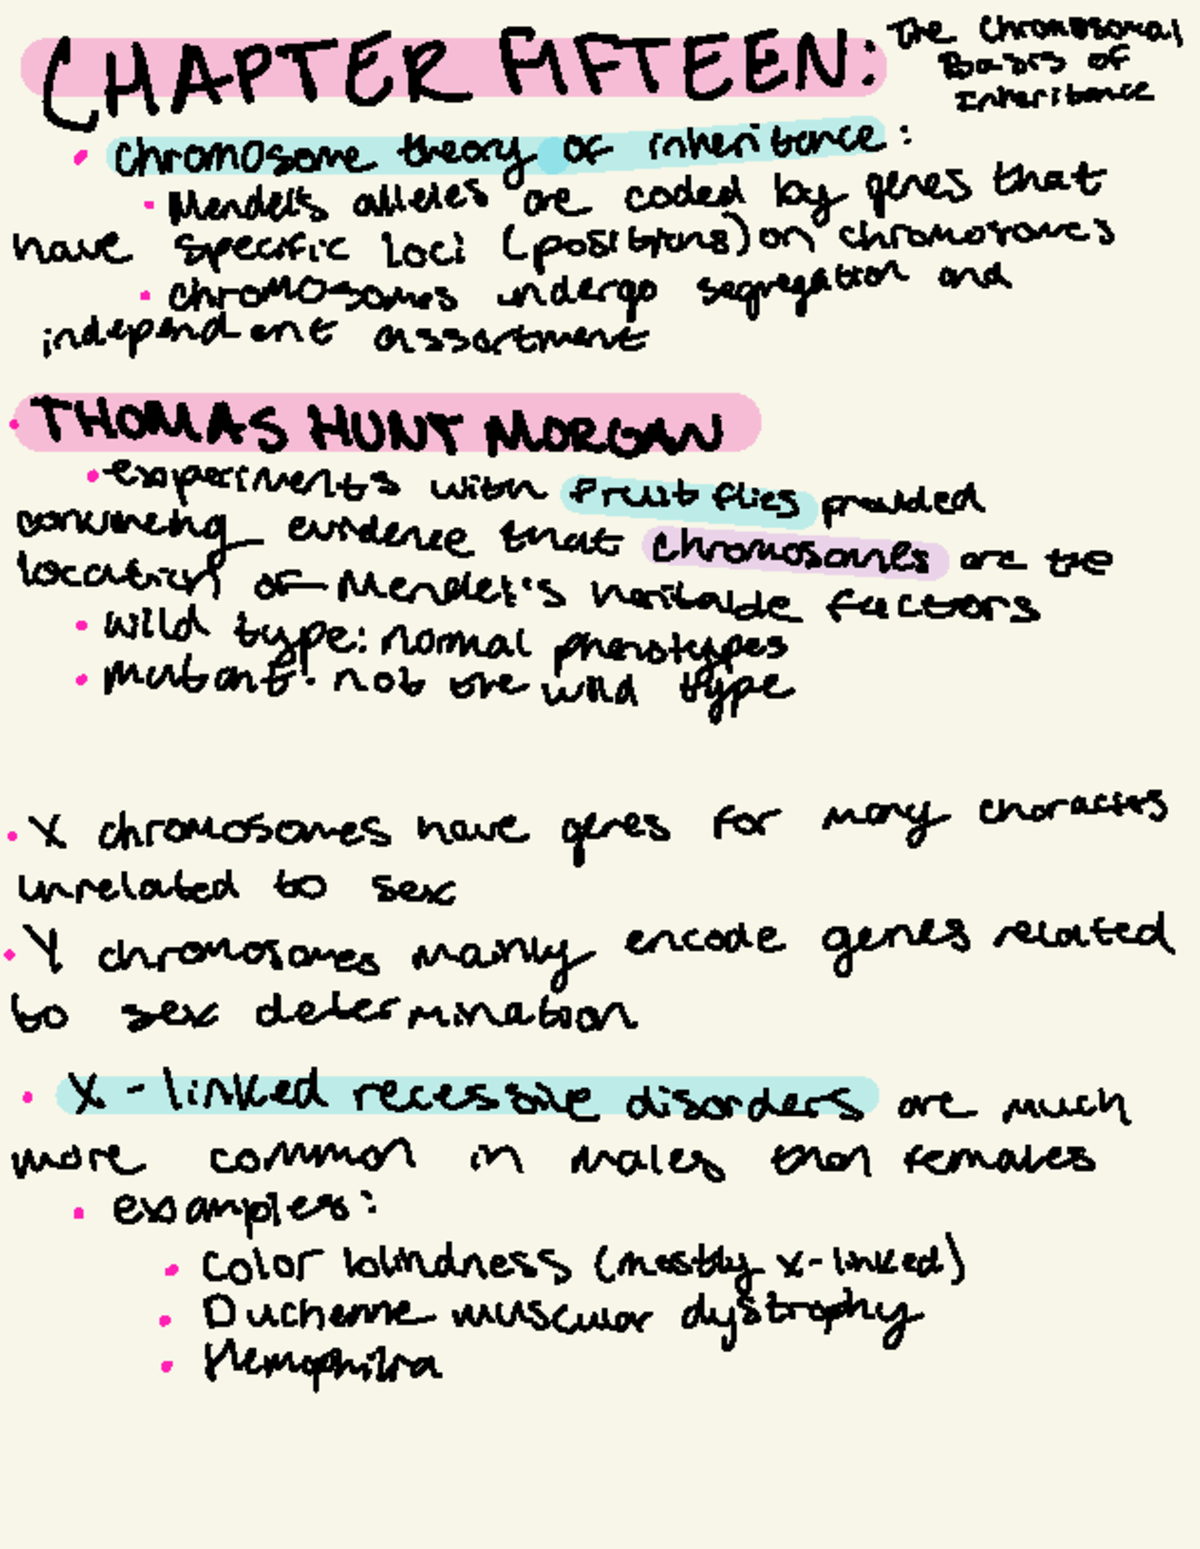 CHAPTER FIFTEEN: The Chromosomal
Basis of
Inheritance
• chromosome theory of inheritance:
• Mendel's alleles are coded by genes that
have specific loci (positions) on chromosomes
• chromosomes undergo segregation and
independent assortment
• THOMAS HUNT MORGAN
• experiments with fruit flies provided
convincing evidence that chromosomes are the
location of Mendel's heritable factors
• wild type: normal phenotypes
• mutant: not the wild type
• X chromosomes have genes for many characters
unrelated to sex
• Y chromosomes mainly encode genes related
to sex determination
• X-linked recessive disorders are much
more common in males than females
• examples:
• Color blindness (mostly x-linked)
• Duchenne muscular dystrophy
• Hemophilia